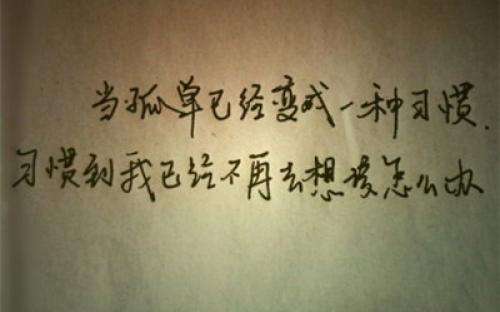 当孤单已经变成一种习惯.
习惯到我已经不再去想该怎么办